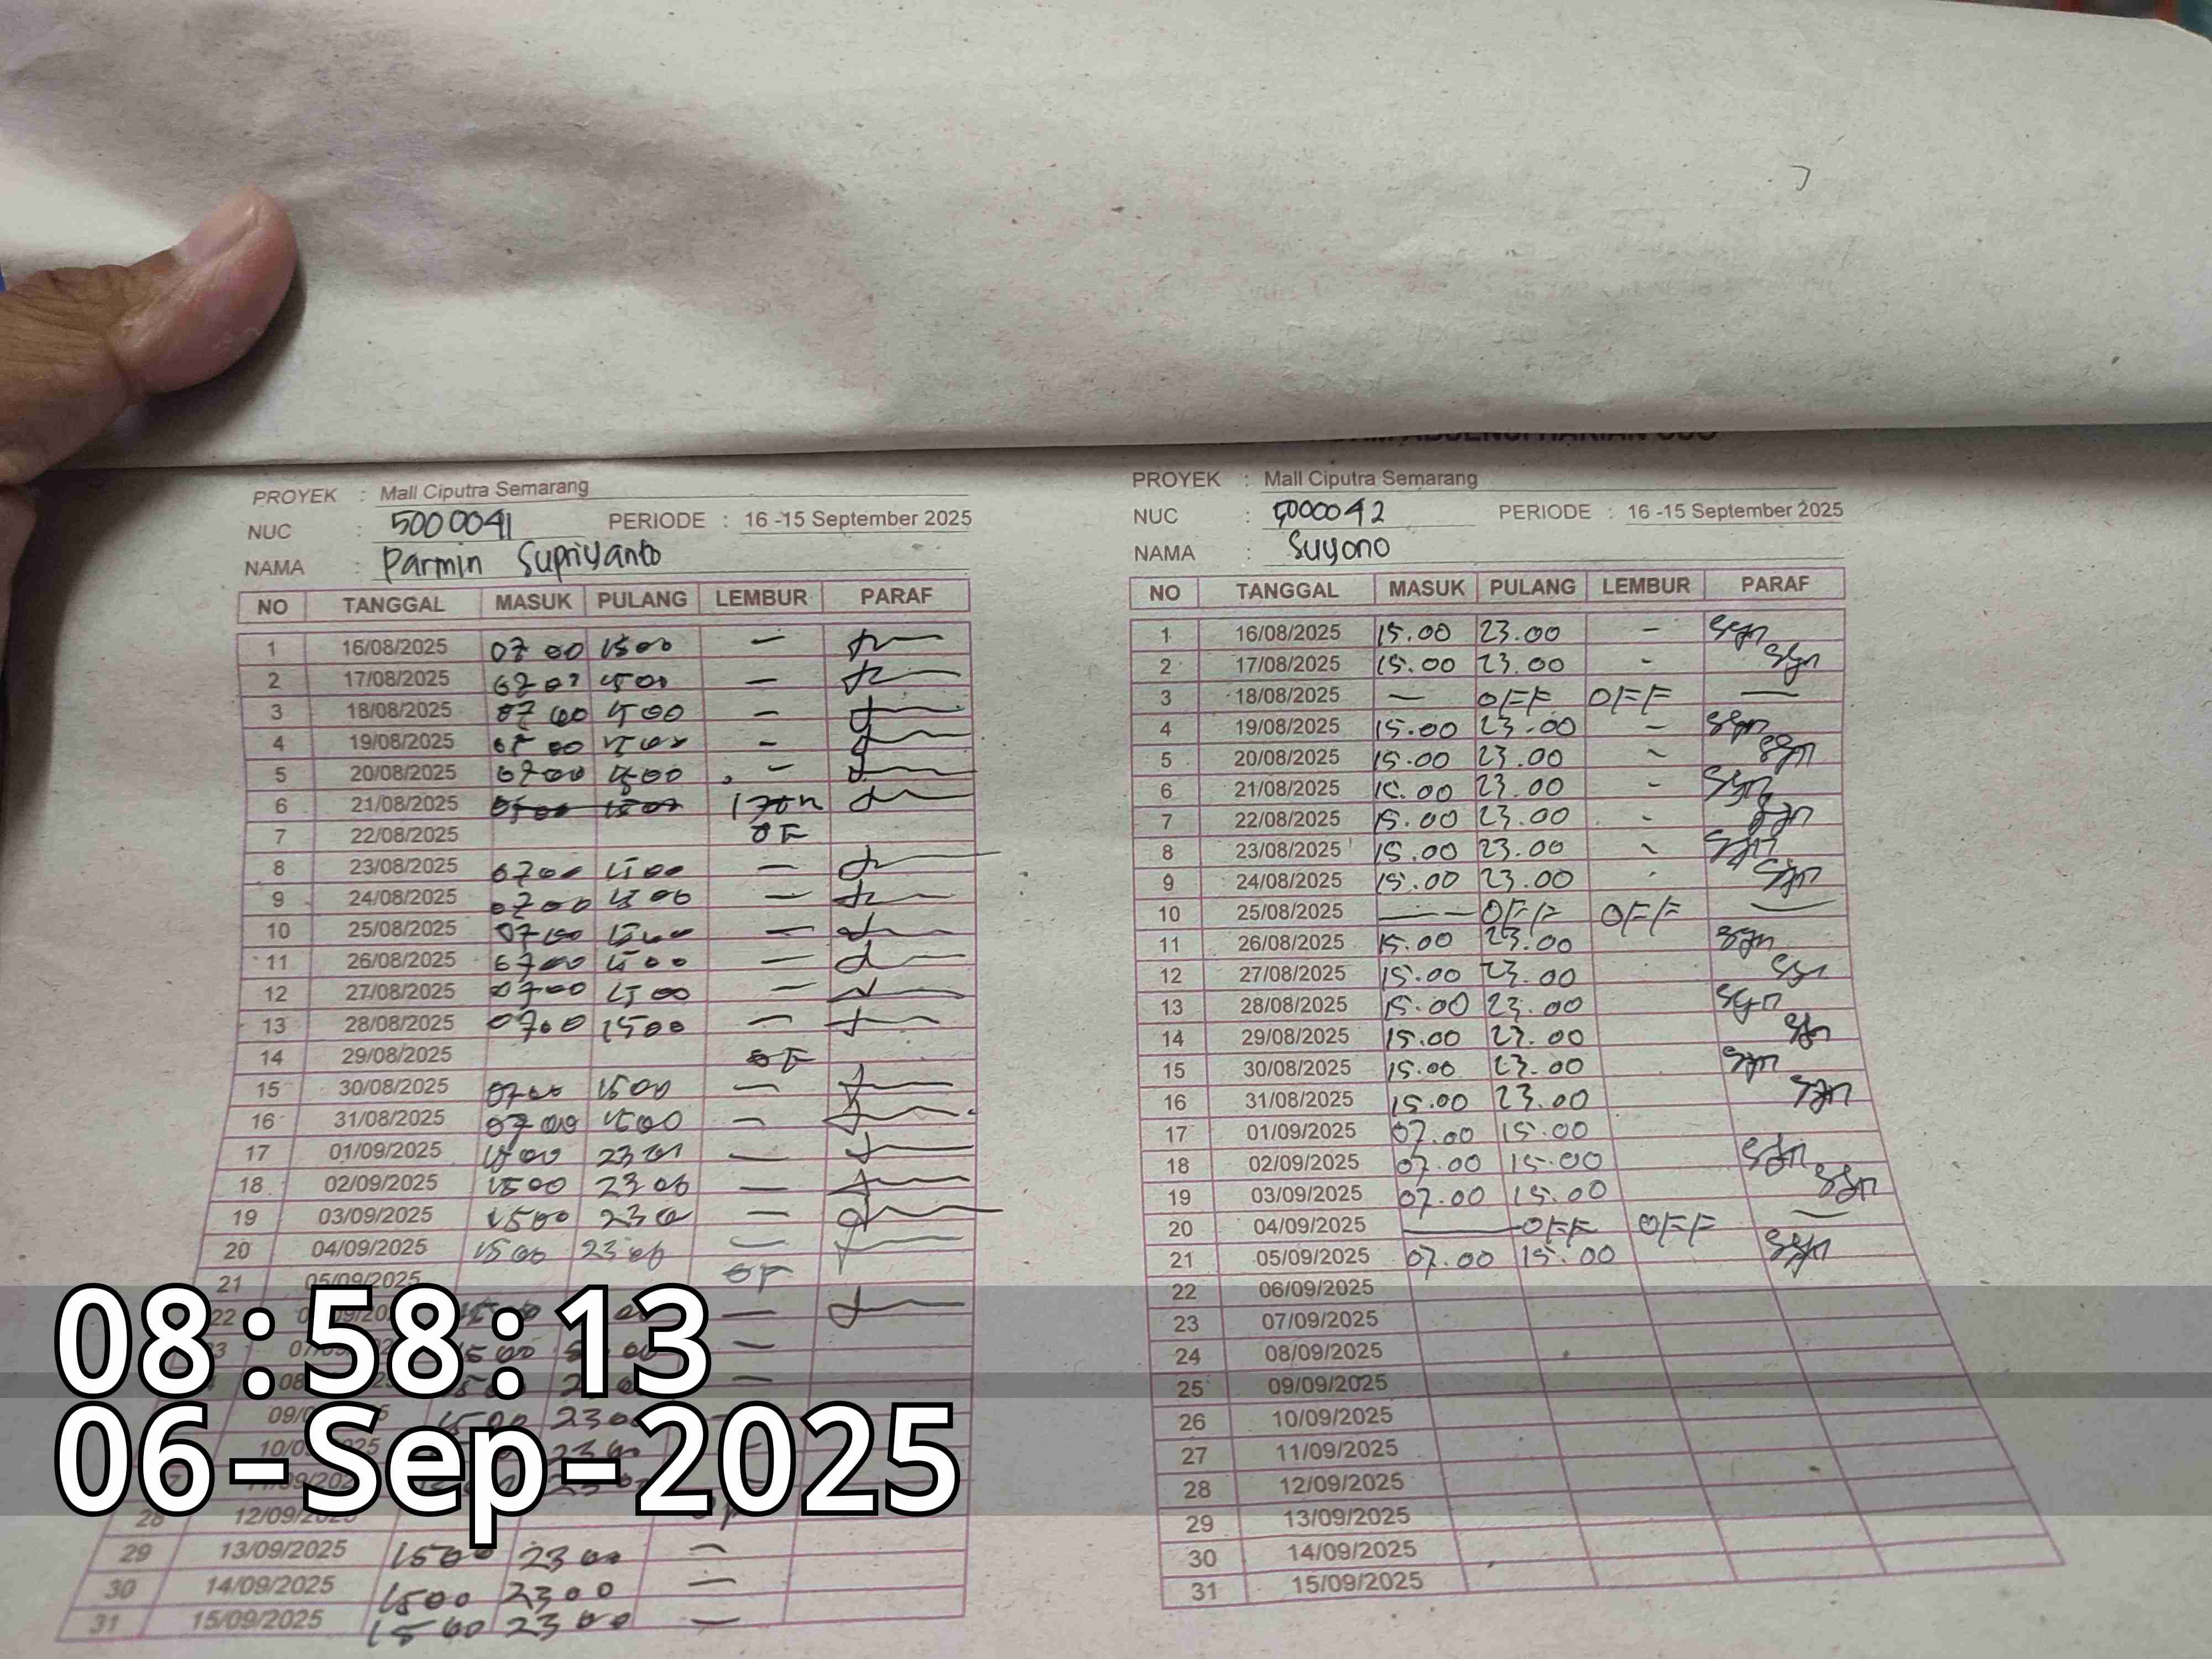 PROYEK : Mall Ciputra Semarang
NUC : 5000041 PERIODE : 16 -15 September 2025
NAMA : Parmin Supriyanto
NO TANGGAL MASUK PULANG LEMBUR PARAF
1 16/08/2025 07 00 1500 —
2 17/08/2025 1500 —
3 18/08/2025 07 00 1500 —
4 19/08/2025 —
5 20/08/2025 0700 1500 —
6 21/08/2025
7 22/08/2025 OF
8 23/08/2025 0700 1500 —
9 24/08/2025 0700 1500 —
10 25/08/2025 0700 1500 —
11 26/08/2025 0700 1500 —
12 27/08/2025 0700 1500 —
13 28/08/2025 0700 1500 —
14 29/08/2025 OF
15 30/08/2025 0700 1500 —
16 31/08/2025 0700 1500 —
17 01/09/2025 1500 2300 —
18 02/09/2025 1500 2300 —
19 03/09/2025 1500 2300 —
20 04/09/2025 1500 2300 —
21 05/09/2025 OF
22 —
—
—
2300
10/0 2300
28 12/09/2025
29 13/09/2025 1500 2300 —
30 14/09/2025 1500 2300 —
31 15/09/2025 1500 2300 —
PROYEK : Mall Ciputra Semarang
NUC : 5000042 PERIODE : 16 -15 September 2025
NAMA : Suyono
NO TANGGAL MASUK PULANG LEMBUR PARAF
1 16/08/2025 15.00 23.00 -
2 17/08/2025 15.00 23.00 -
3 18/08/2025 — OFF OFF —
4 19/08/2025 15.00 23.00 -
5 20/08/2025 15.00 23.00 -
6 21/08/2025 15.00 23.00 -
7 22/08/2025 15.00 23.00 -
8 23/08/2025 15.00 23.00 -
9 24/08/2025 15.00 23.00 -
10 25/08/2025 — OFF OFF —
11 26/08/2025 15.00 23.00
12 27/08/2025 15.00 23.00
13 28/08/2025 15.00 23.00
14 29/08/2025 15.00 23.00
15 30/08/2025 15.00 23.00
16 31/08/2025 15.00 23.00
17 01/09/2025 07.00 15.00
18 02/09/2025 07.00 15.00
19 03/09/2025 07.00 15.00
20 04/09/2025 — OFF OFF —
21 05/09/2025 07.00 15.00
22 06/09/2025
23 07/09/2025
24 08/09/2025
25 09/09/2025
26 10/09/2025
27 11/09/2025
28 12/09/2025
29 13/09/2025
30 14/09/2025
31 15/09/2025
08:58:13
06-Sep-2025